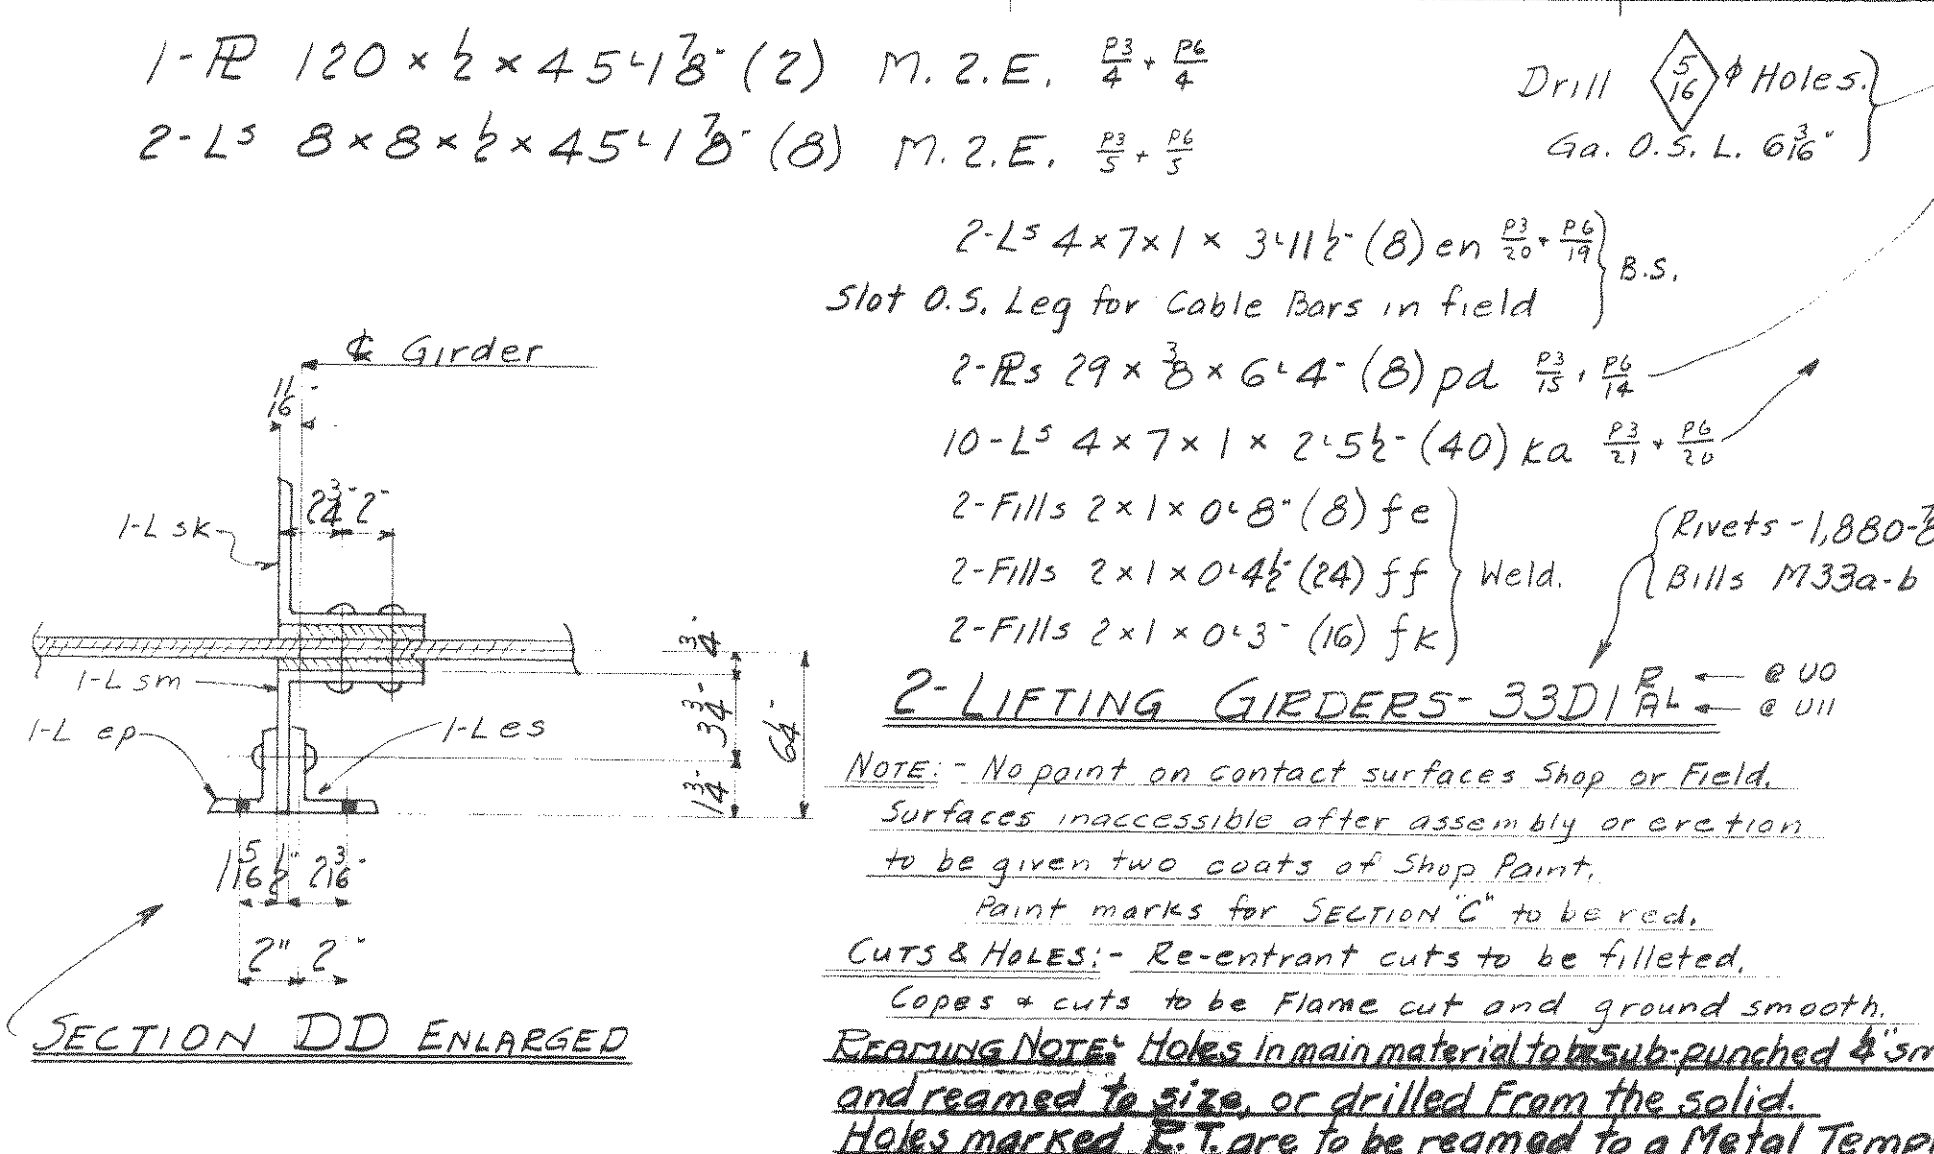 1-PL 120 × 1/2 × 45'-1 7/8" (2) M.2.E. P3/4 + P6/4
2-Ls 8 × 8 × 1/2 × 45'-1 7/8" (8) M.2.E. P3/5 + P6/5
Drill 5/16 ϕ Holes.
Ga. O.S.L. 6 3/16"
2-Ls 4 × 7 × 1 × 3'-11 1/2" (8) en P3/20 + P6/19
Slot O.S. Leg for Cable Bars in field
B.S.
2-PLs 29 × 3/8 × 6'-4" (8) pd P3/15 + P6/14
10-Ls 4 × 7 × 1 × 2'-5 1/2" (40) ka P3/21 + P6/20
2-Fills 2 × 1 × 0'-8" (8) fe
2-Fills 2 × 1 × 0'-4 1/2" (24) ff
2-Fills 2 × 1 × 0'-3" (16) fk
Weld.
Rivets - 1,880-7/8
Bills M33a-b
2-LIFTING GIRDERS- 33D1 R @ U0
AL @ U11
NOTE:- No paint on contact surfaces Shop or Field.
Surfaces inaccessible after assembly or eretion
to be given two coats of Shop Paint.
Paint marks for SECTION "C" to be red.
CUTS & HOLES:- Re-entrant cuts to be filleted.
Copes & cuts to be Flame cut and ground smooth.
REAMING NOTE: Holes in main material to be sub-punched
and reamed to size, or drilled from the solid.
Holes marked R.T. are to be reamed to a Metal
℄ Girder
11/16"
2 3/4" 2"
1-L sk
3/4"
1-L sm
3 3/4"
6 1/4"
1-L ep
1-L es
1 3/4"
1 5/16 1/2" 2 3/16"
2" 2"
SECTION DD ENLARGED